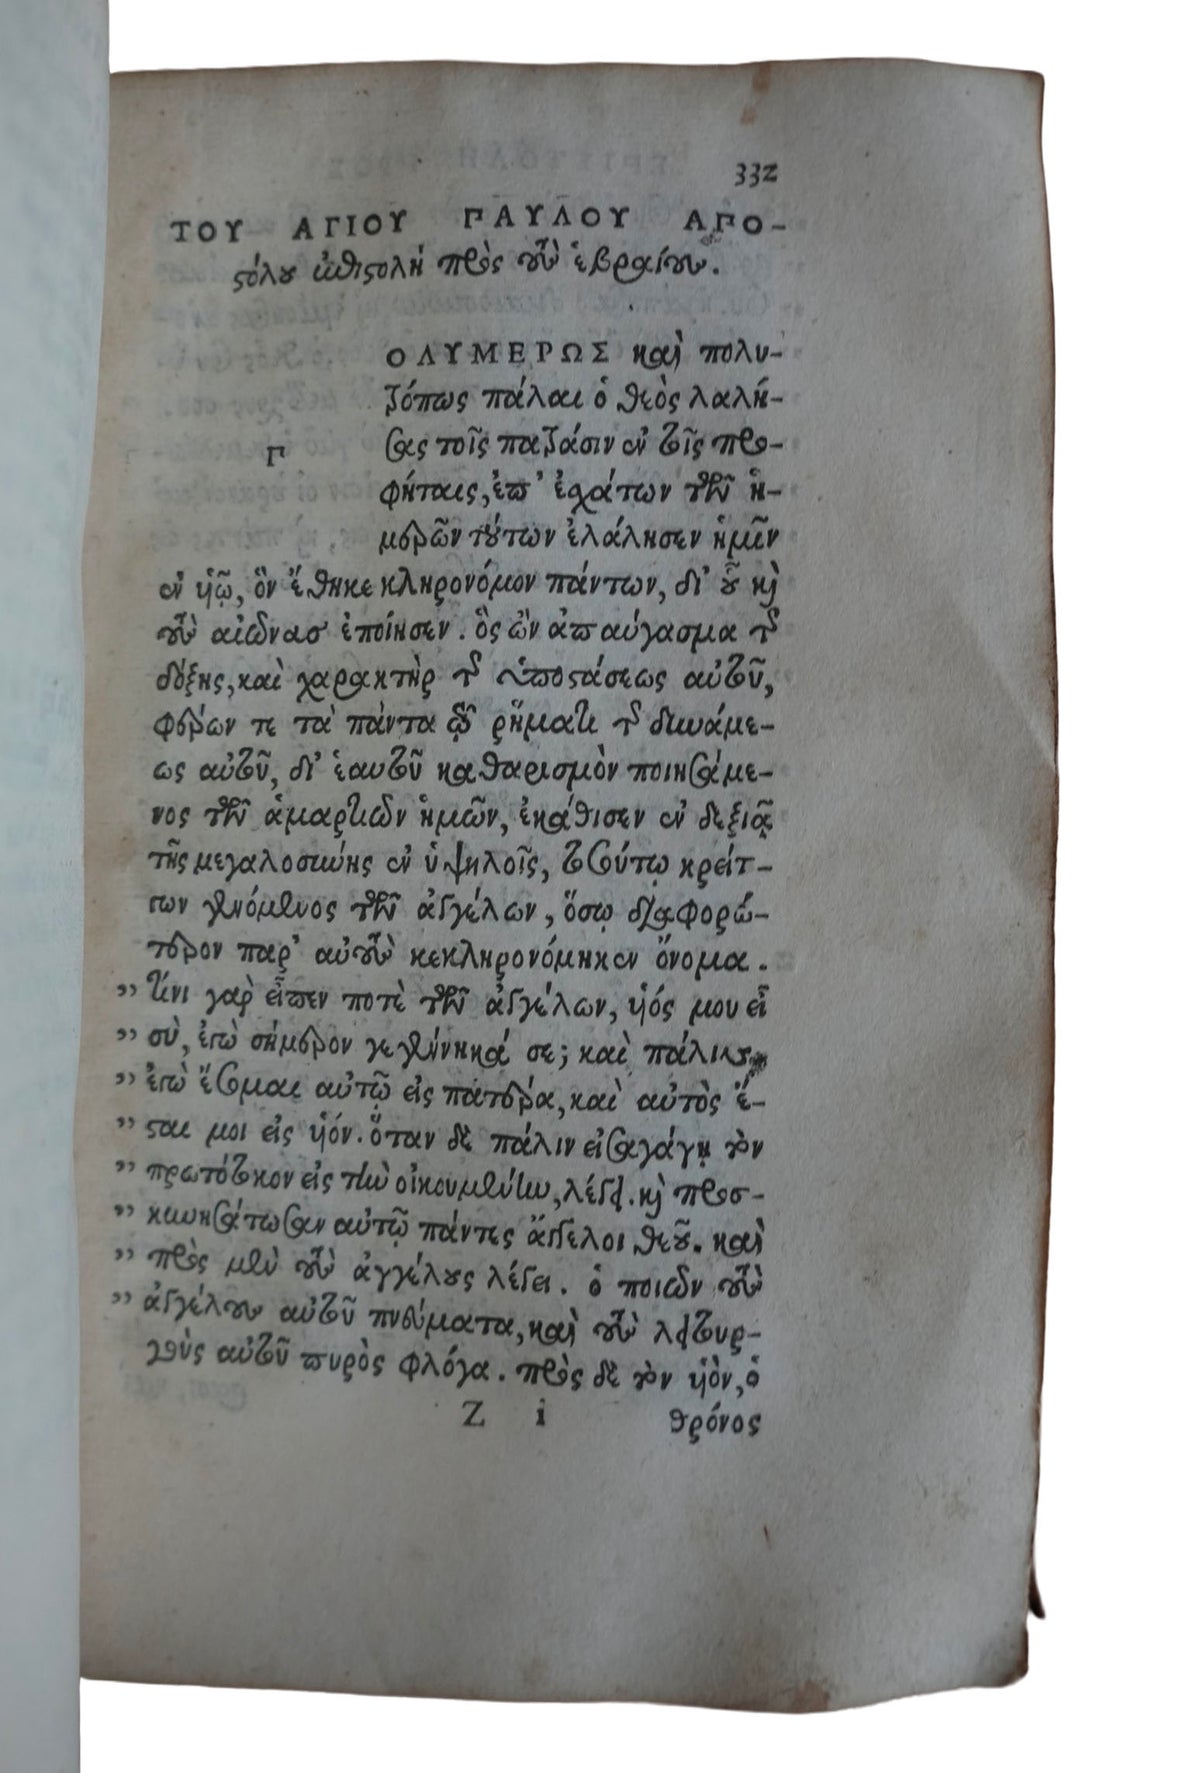 332
ΤΟΥ ΑΓΙΟΥ ΠΑΥΛΟΥ ΑΠΟ-
στόλου ἐπιστολὴ πρὸς τοὺς ἑβραίους.
ΟΛΥΜΕΡΩΣ καὶ πολυ-
τρόπως πάλαι ὁ θεὸς λαλή-
σας τοῖς πατράσιν ἐν τοῖς προ-
Π
φήταις, ἐπ' ἐσχάτων τῶν ἡ-
μερῶν τούτων ἐλάλησεν ἡμῖν
ἐν υἱῷ, ὃν ἔθηκε κληρονόμον πάντων, δι' οὗ καὶ
τοὺς αἰῶνας ἐποίησεν. ὃς ὢν ἀπαύγασμα τῆς
δόξης, καὶ χαρακτὴρ τῆς ὑποστάσεως αὐτοῦ,
φέρων τε τὰ πάντα τῷ ῥήματι τῆς δυνάμε-
ως αὐτοῦ, δι' ἑαυτοῦ καθαρισμὸν ποιησάμε-
νος τῶν ἁμαρτιῶν ἡμῶν, ἐκάθισεν ἐν δεξιᾷ
τῆς μεγαλοσύνης ἐν ὑψηλοῖς, τοσούτῳ κρείτ-
των γενόμενος τῶν ἀγγέλων, ὅσῳ διαφορώ-
τερον παρ' αὐτοὺς κεκληρονόμηκεν ὄνομα.
" Τίνι γὰρ εἶπεν ποτὲ τῶν ἀγγέλων, υἱός μου εἶ
" σὺ, ἐγὼ σήμερον γεγέννηκά σε; καὶ πάλιν,
" ἐγὼ ἔσομαι αὐτῷ εἰς πατέρα, καὶ αὐτὸς ἔ-
" σται μοι εἰς υἱόν. ὅταν δὲ πάλιν εἰσαγάγῃ τὸν
" πρωτότοκον εἰς τὴν οἰκουμένην, λέγει. καὶ προσ-
" κυνησάτωσαν αὐτῷ πάντες ἄγγελοι θεοῦ. καὶ
" πρὸς μὲν τοὺς ἀγγέλους λέγει. ὁ ποιῶν τοὺς
" ἀγγέλους αὐτοῦ πνεύματα, καὶ τοὺς λειτουρ-
γοὺς αὐτοῦ πυρὸς φλόγα. πρὸς δὲ τὸν υἱὸν, ὁ
Z i θρόνος